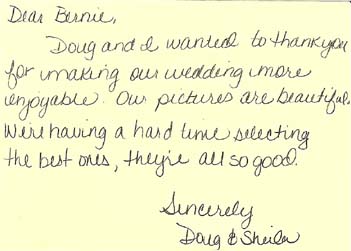 Dear Bernie,
Doug and I wanted to thank you
for making our wedding more
enjoyable. Our pictures are beautiful.
We're having a hard time selecting
the best ones, they're all so good.
Sincerely
Doug & Sheila